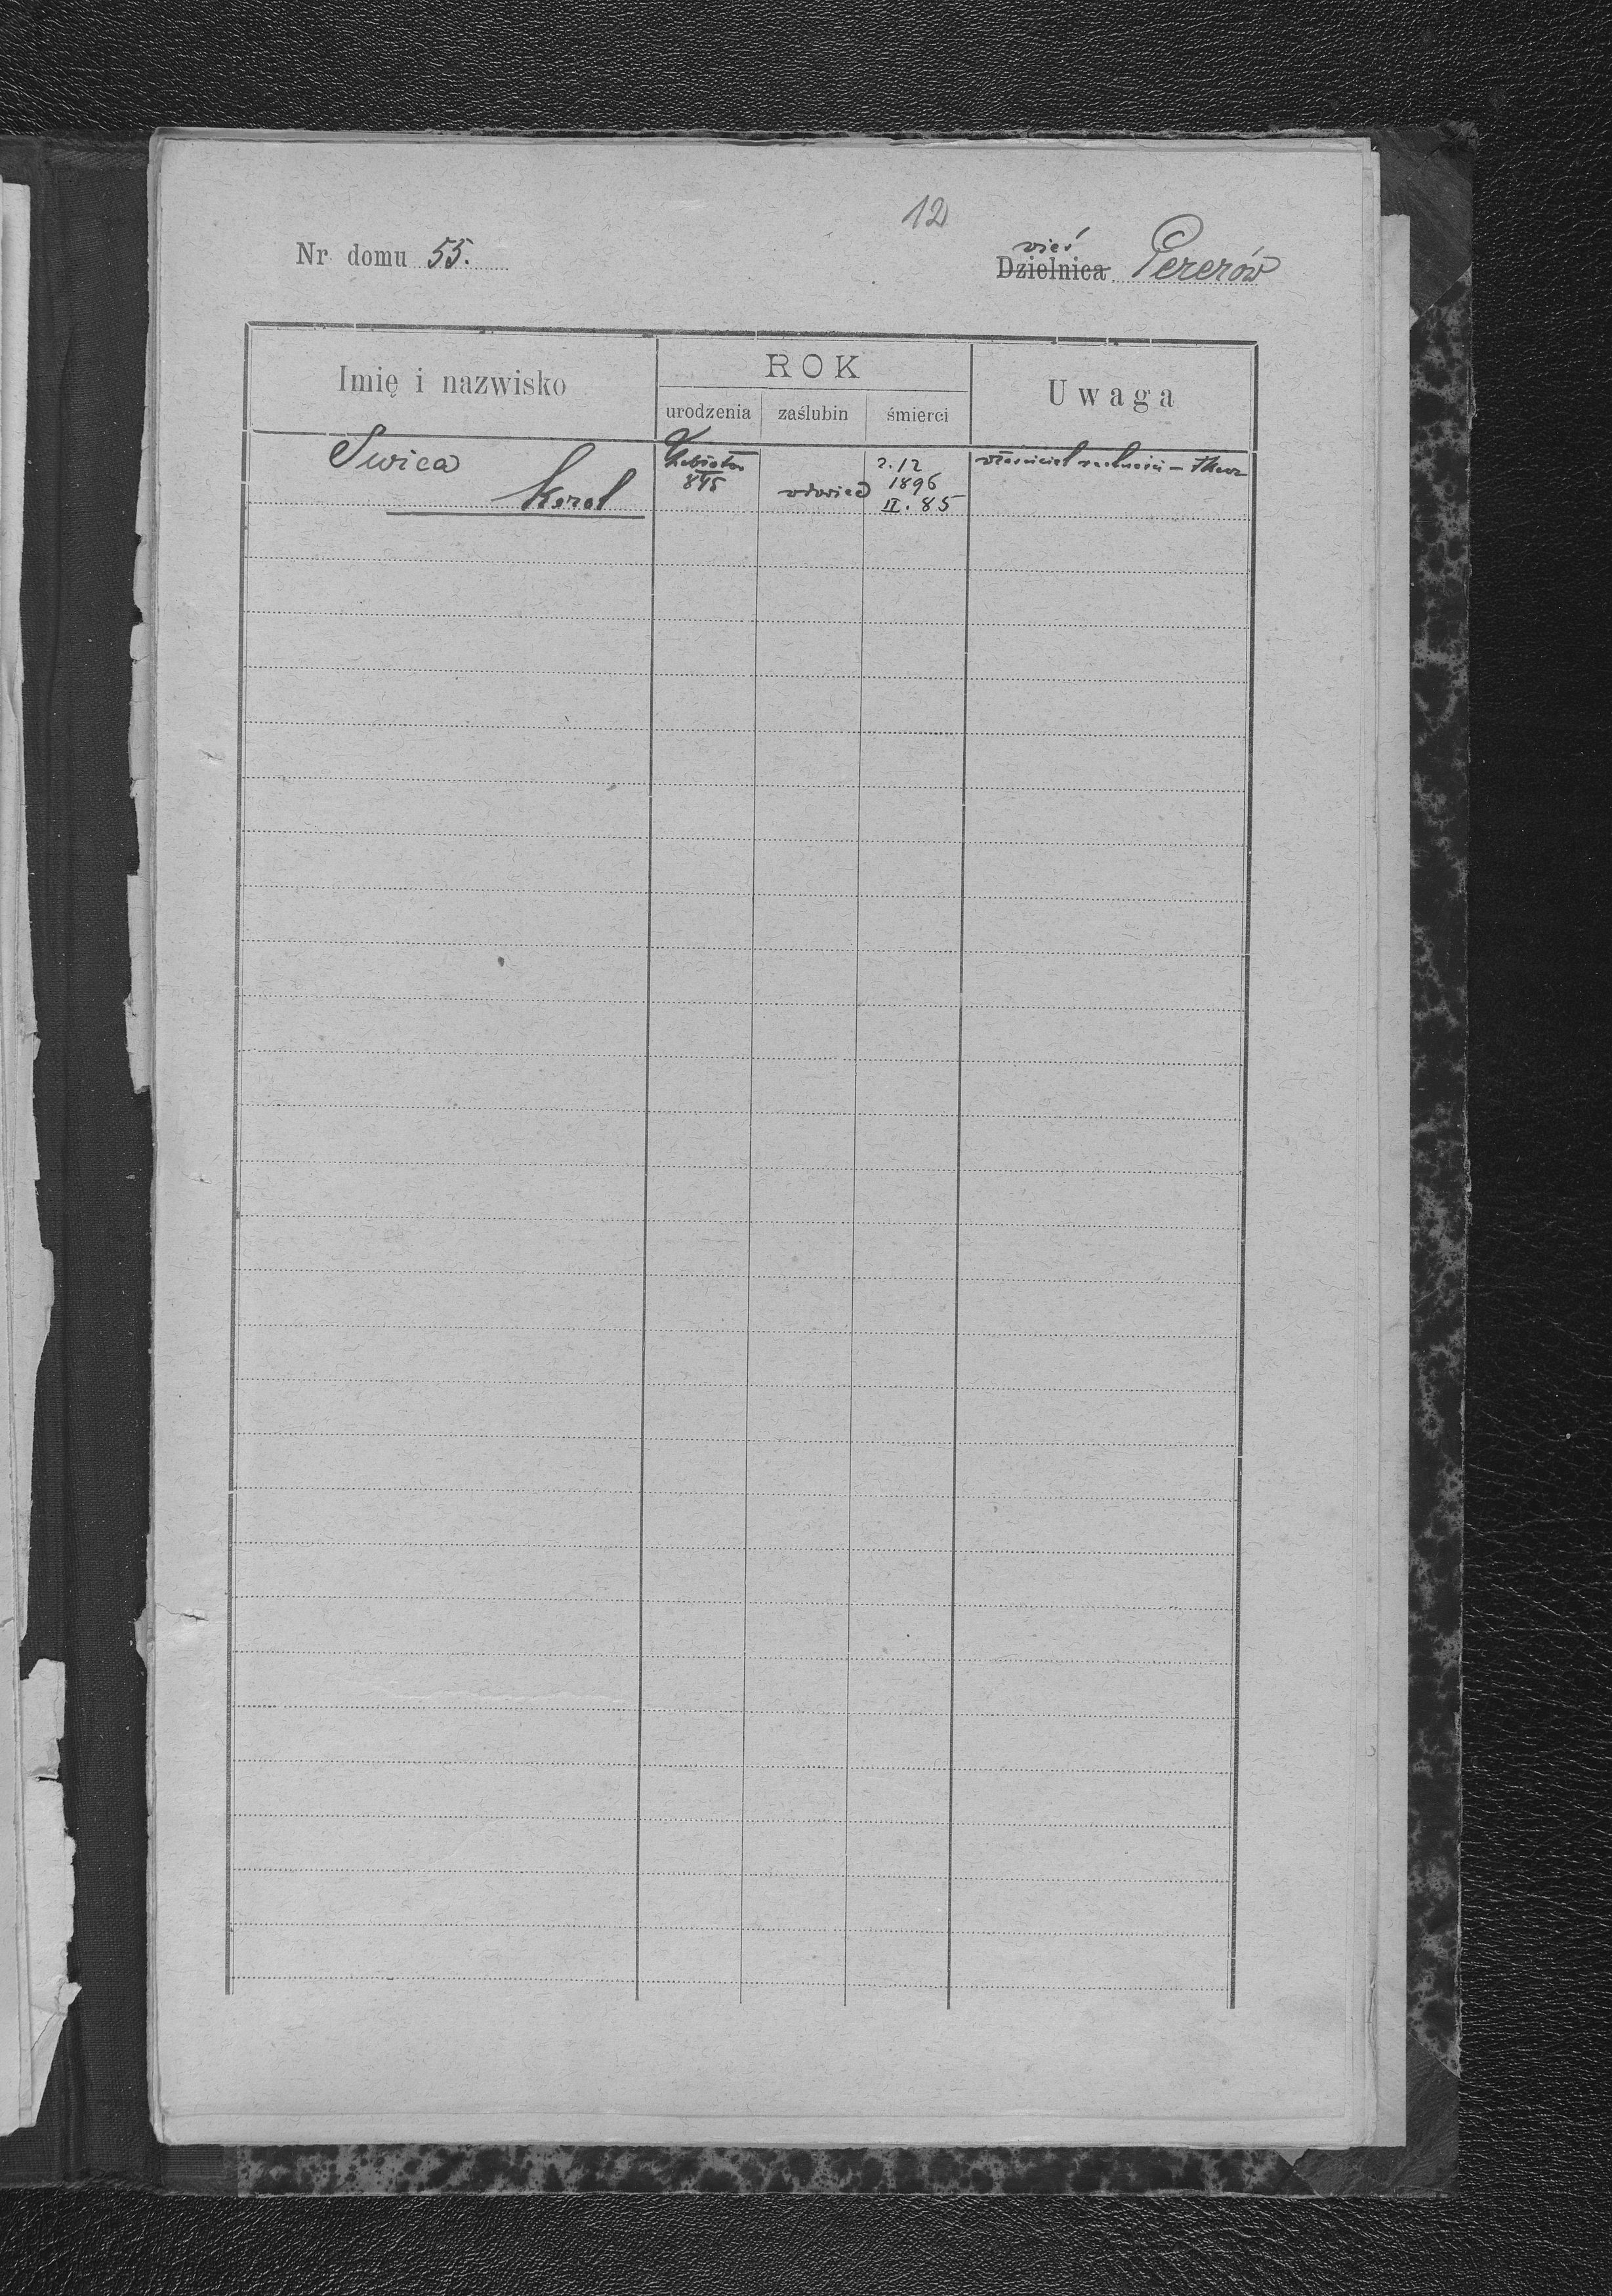 12
Nr domu 55.
wieś
Dzielnica Pererów
Imię i nazwisko
ROK
Uwaga
urodzenia zaślubin śmierci
Swica
Karol
845
wdowiec
2.12
1896
II. 85
właściciel realności —